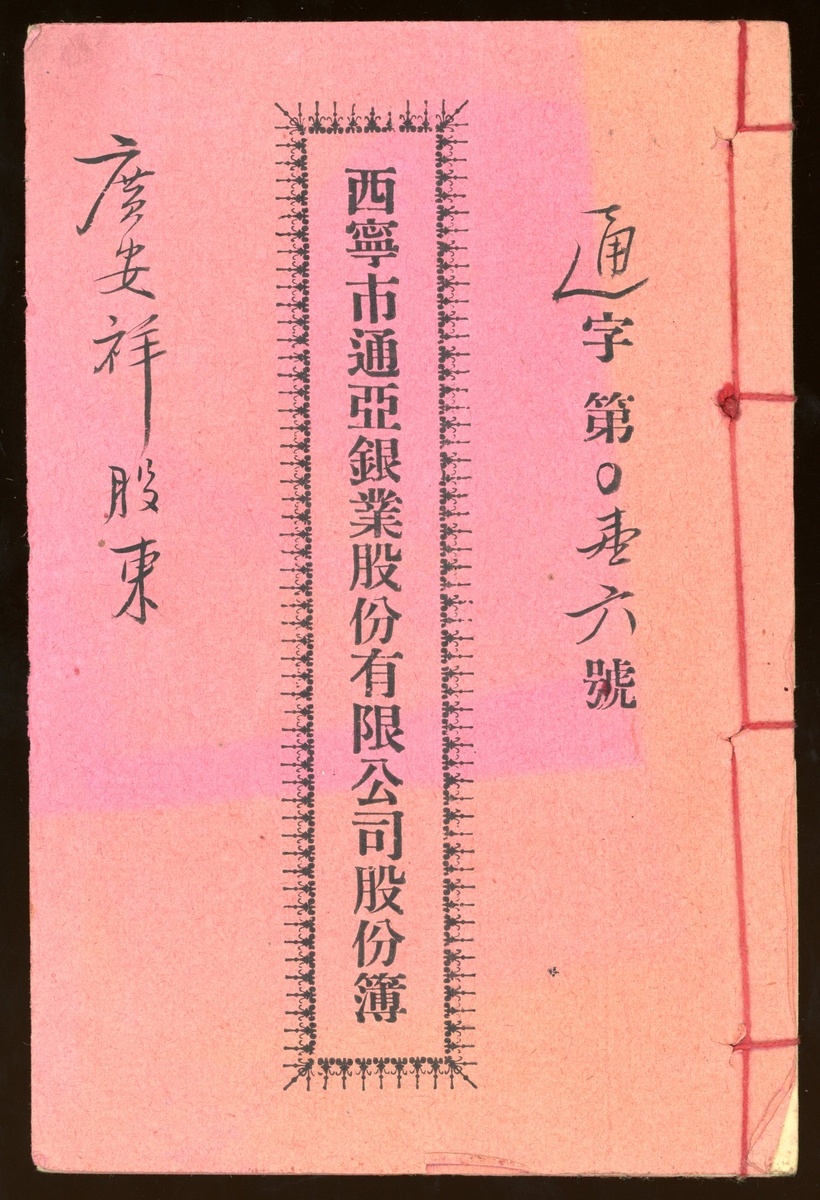 通字第〇壹六號
西寧市通亞銀業股份有限公司股份簿
廣安祥股東